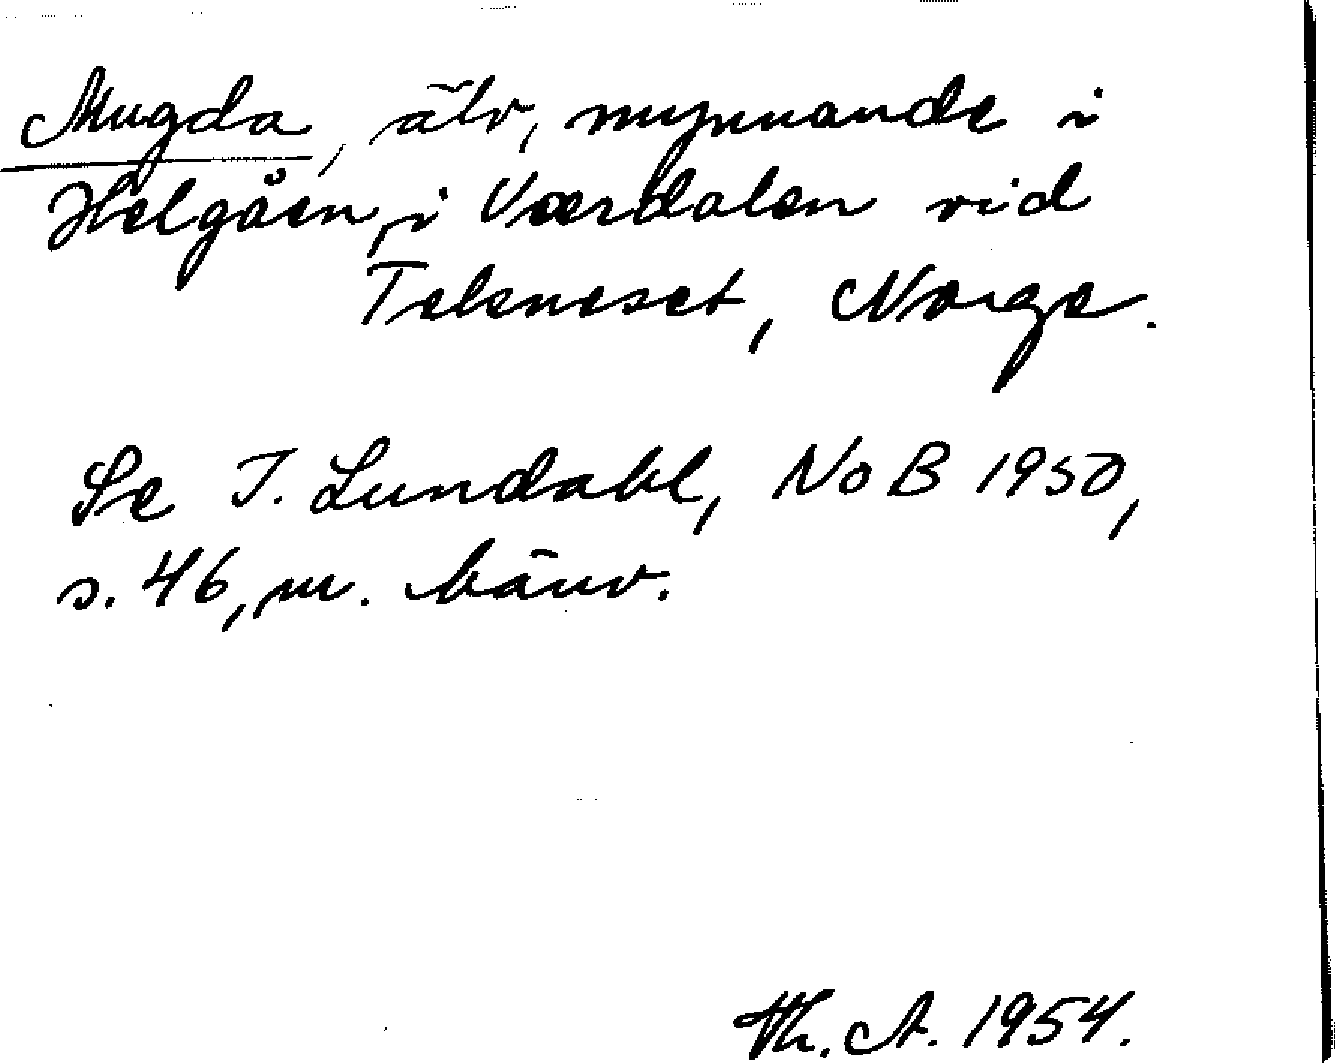 Mugda, älv, mynnande i
Helgåen, i Værdalen vid
Teleneset, Norge.
Se I. Lundahl, NoB 1950,
s. 46, m. hänv.
Th. A. 1954.